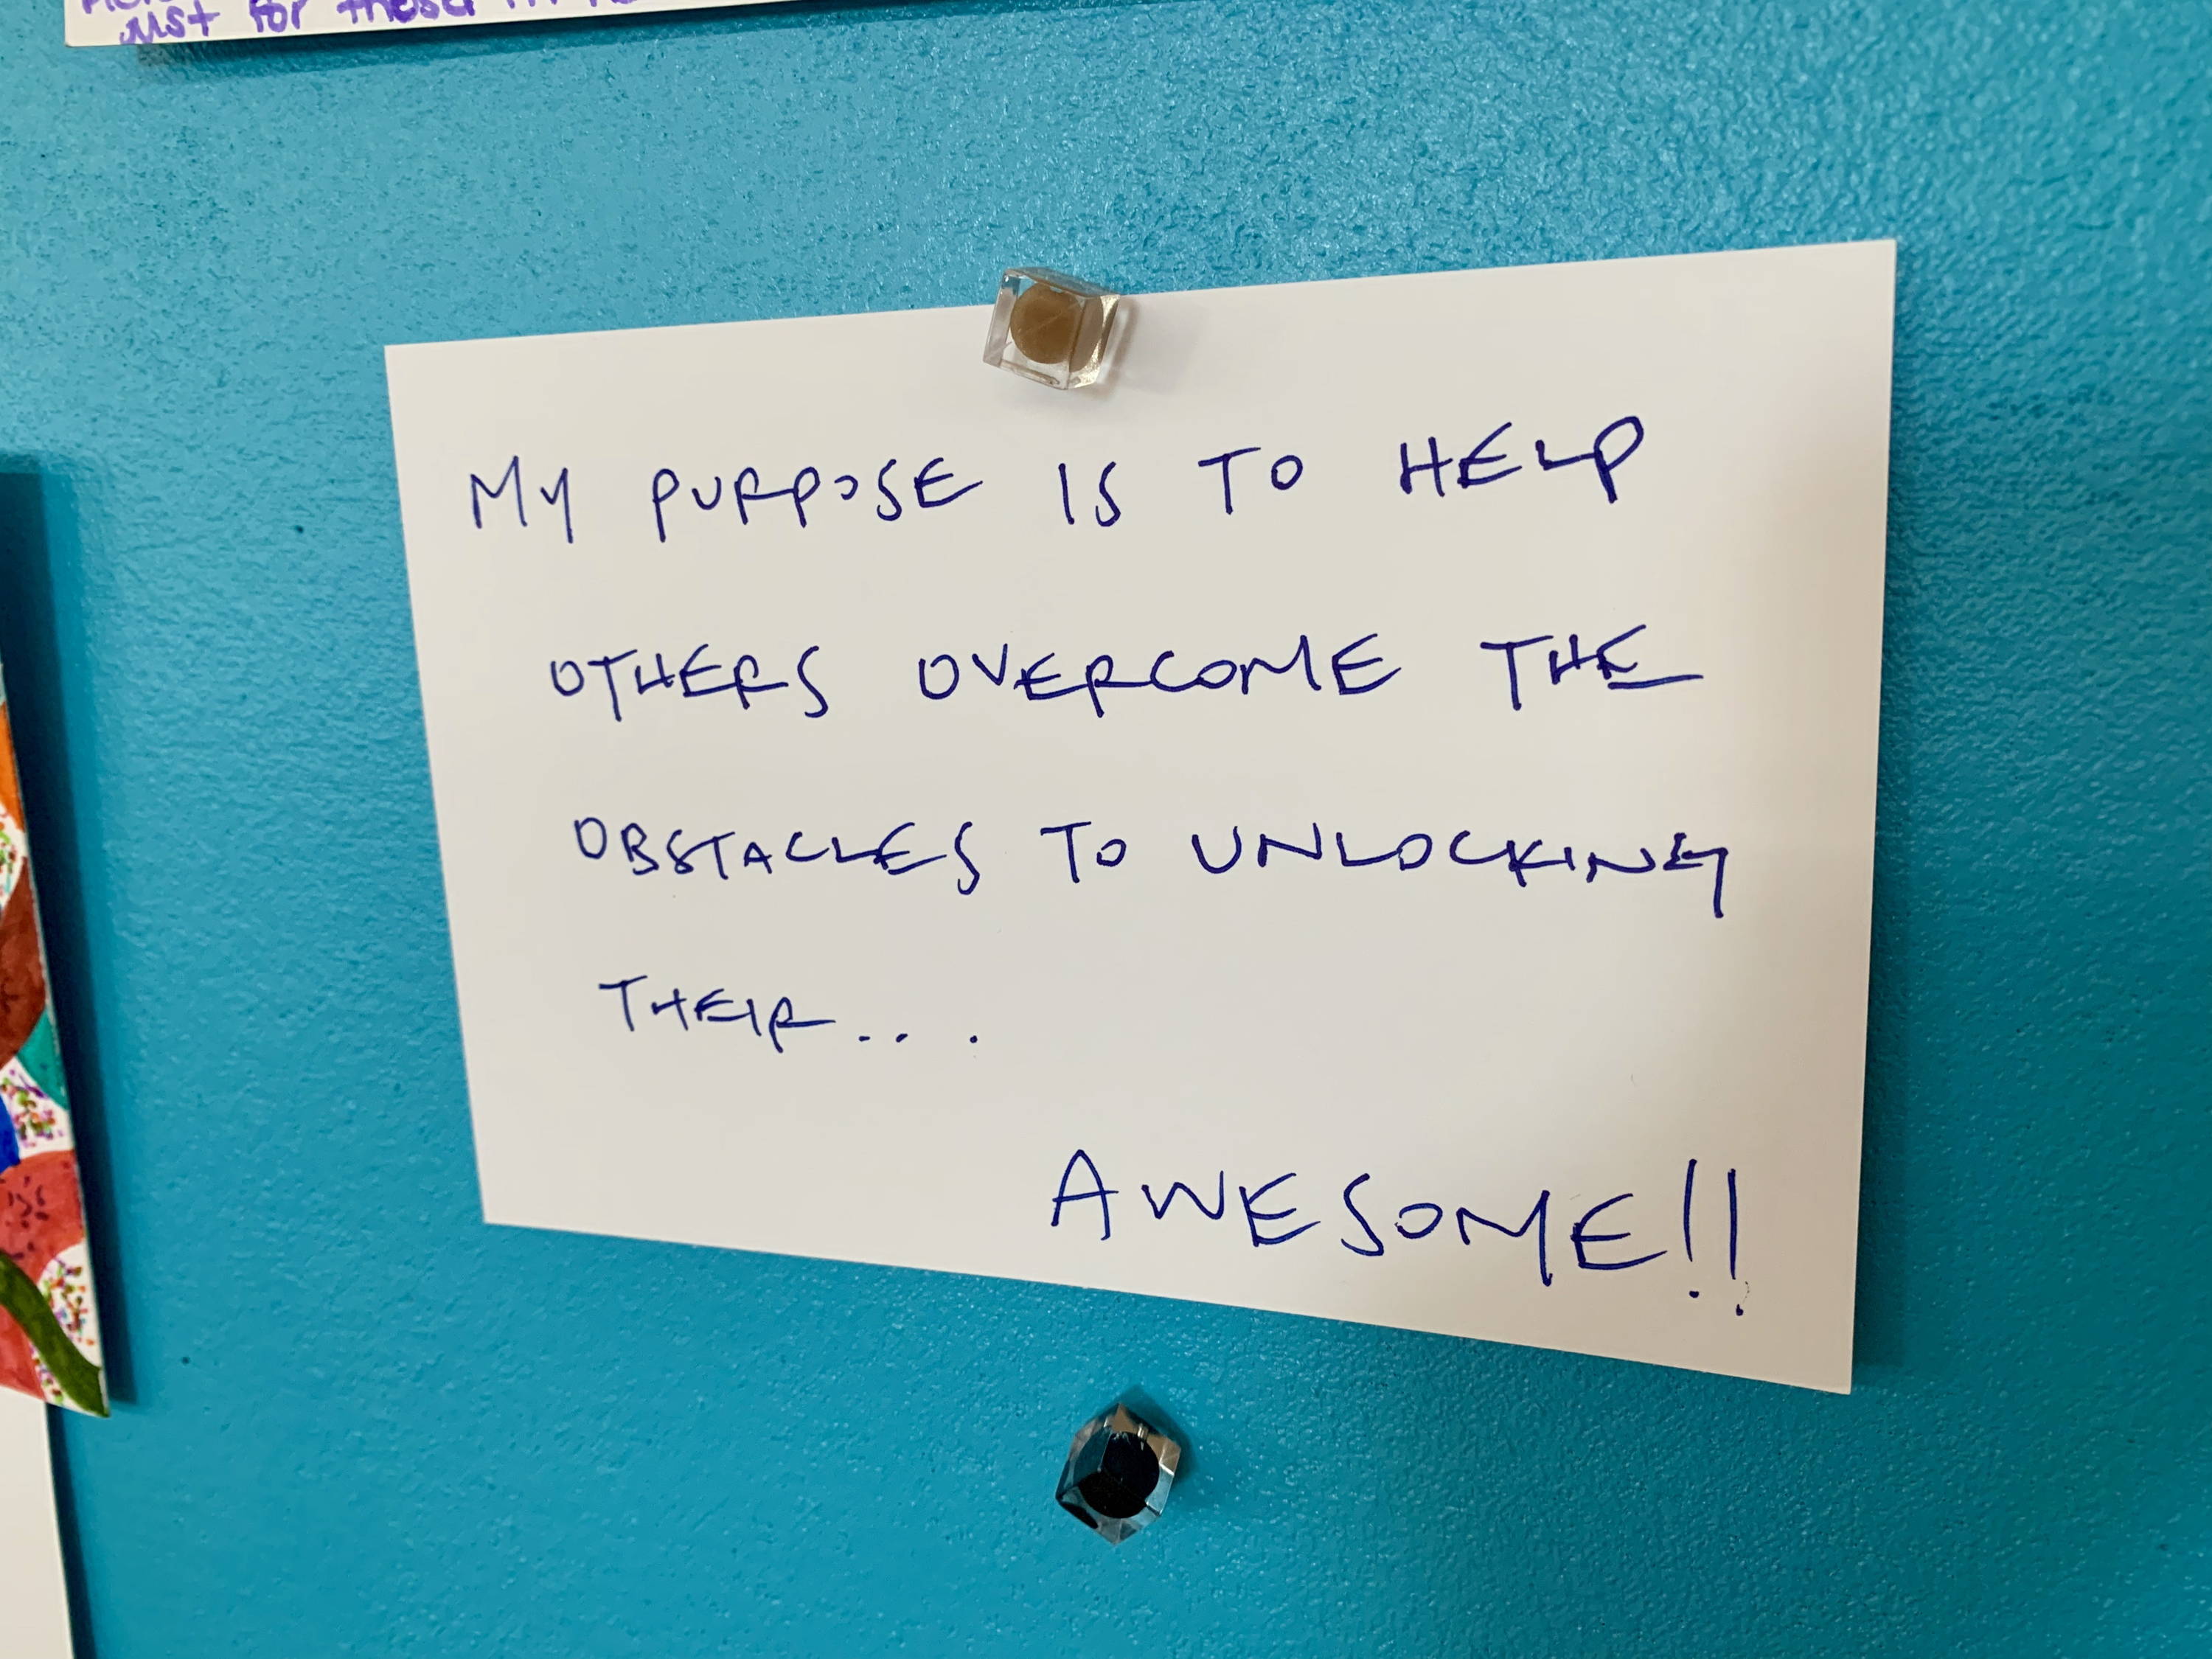 just for these
MY PURPOSE IS TO HELP
OTHERS OVERCOME THE
OBSTACLES TO UNLOCKING
THEIR...
AWESOME!!